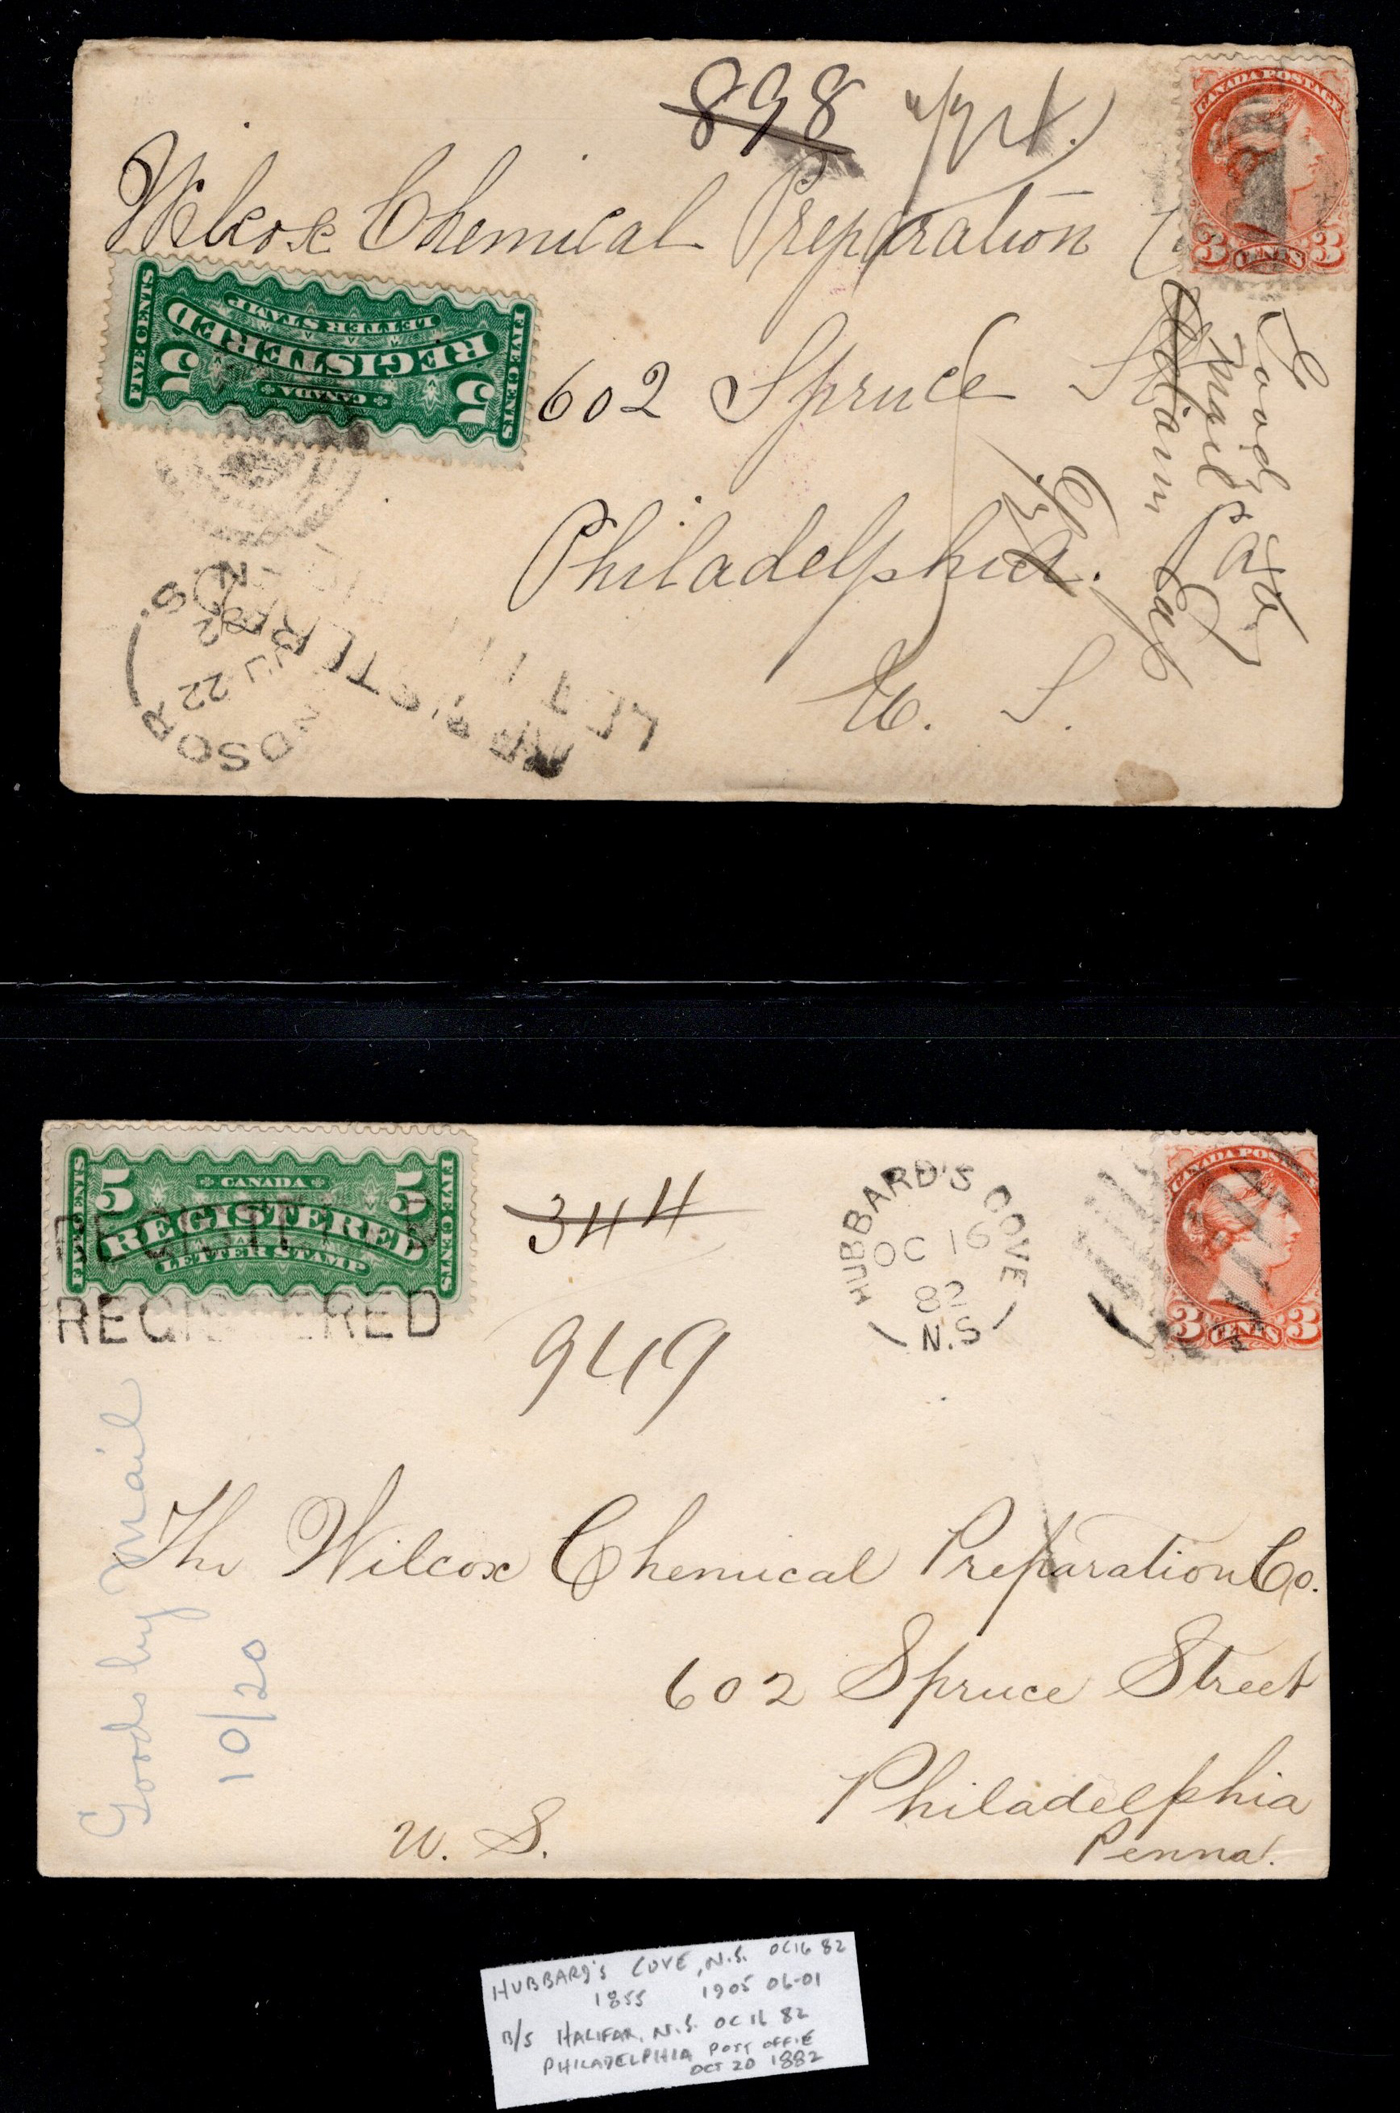 898
CANADA POSTAGE
3 CENTS 3
Wilcox Chemical Preparation
FIVE CENTS
5 CANADA 5
REGISTERED
LETTER STAMP
FIVE CENTS
602 Spruce
Philadelphia.
U. S.
Good
mail
REGISTERED
JU 22
FIVE CENTS
5 CANADA 5
REGISTERED
LETTER STAMP
FIVE CENTS
REGISTERED
REGISTERED
344
949
HUBBARD'S COVE
OC 16
82
N.S
CANADA POSTAGE
3 CENTS 3
Goods by Mail
10/20
The Wilcox Chemical Preparation Co.
602 Spruce Street
Philadelphia
Penna.
U. S.
HUBBARD'S COVE, N.S. OC16 82
1855 1905 06-01
B/S HALIFAX, N.S. OC 16 82
PHILADELPHIA POST OFFIE
OCT 20 1882